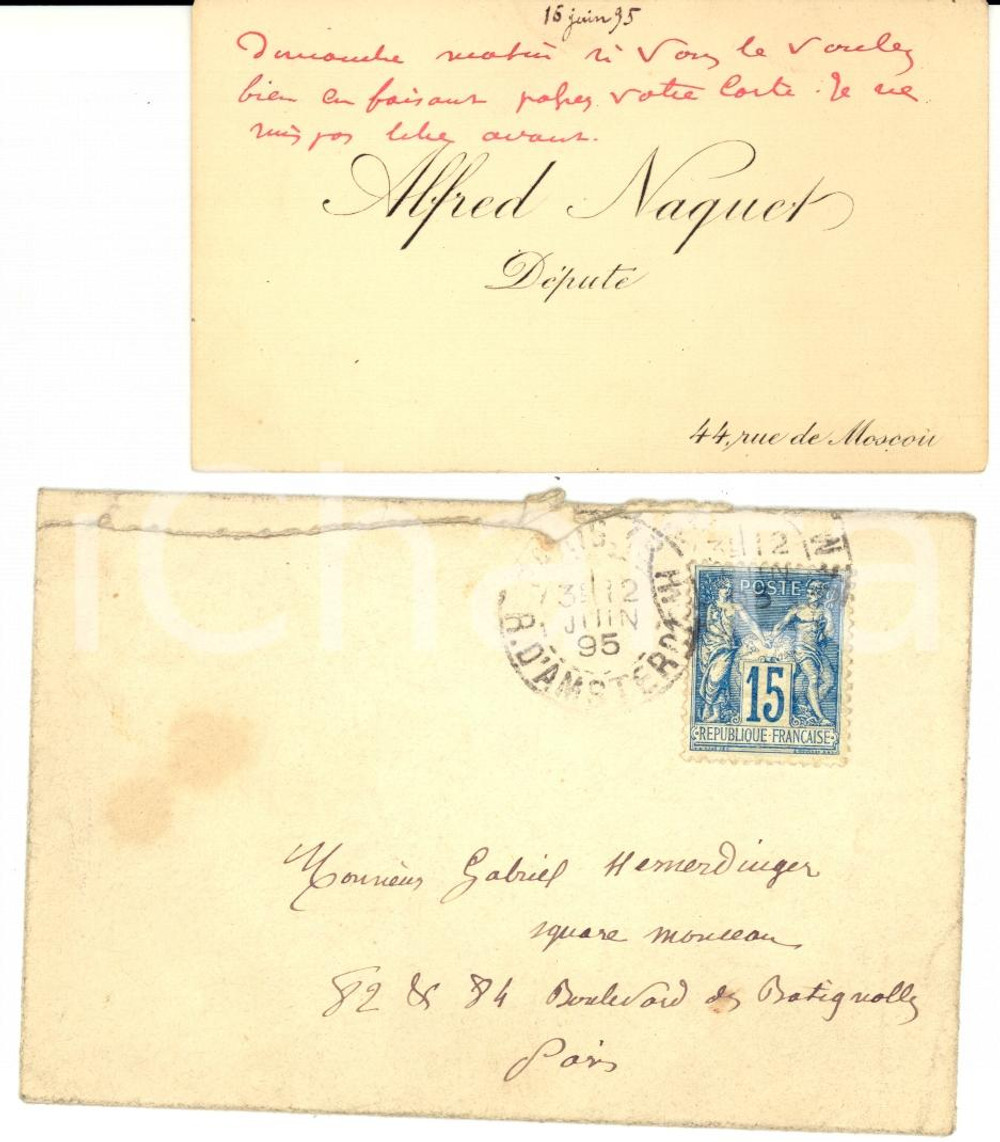 15 juin 95
Dimanche matin si vous le voulez
bien en faisant passer votre carte. Je ne
suis pas libre avant.
Alfred Naquet
Député
44, rue de Moscou
PARIS
7 3E 12
JUIN
95
R. D'AMSTERDAM
3E 12
POSTE
15
REPUBLIQUE FRANÇAISE
Monsieur Gabriel Hemerdinger
square monceau
82 & 84 Boulevard des Batignolles
Paris
iCharta